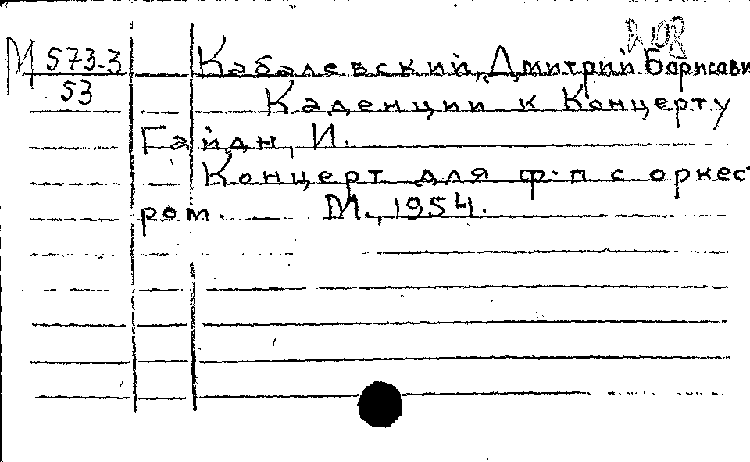 М 573-3 Кабалевский, Дмитрий Борисови
53 Каденции к Концерту
Гайдн, И.
Концерт для ф-п с оркес
ром. М., 1954.